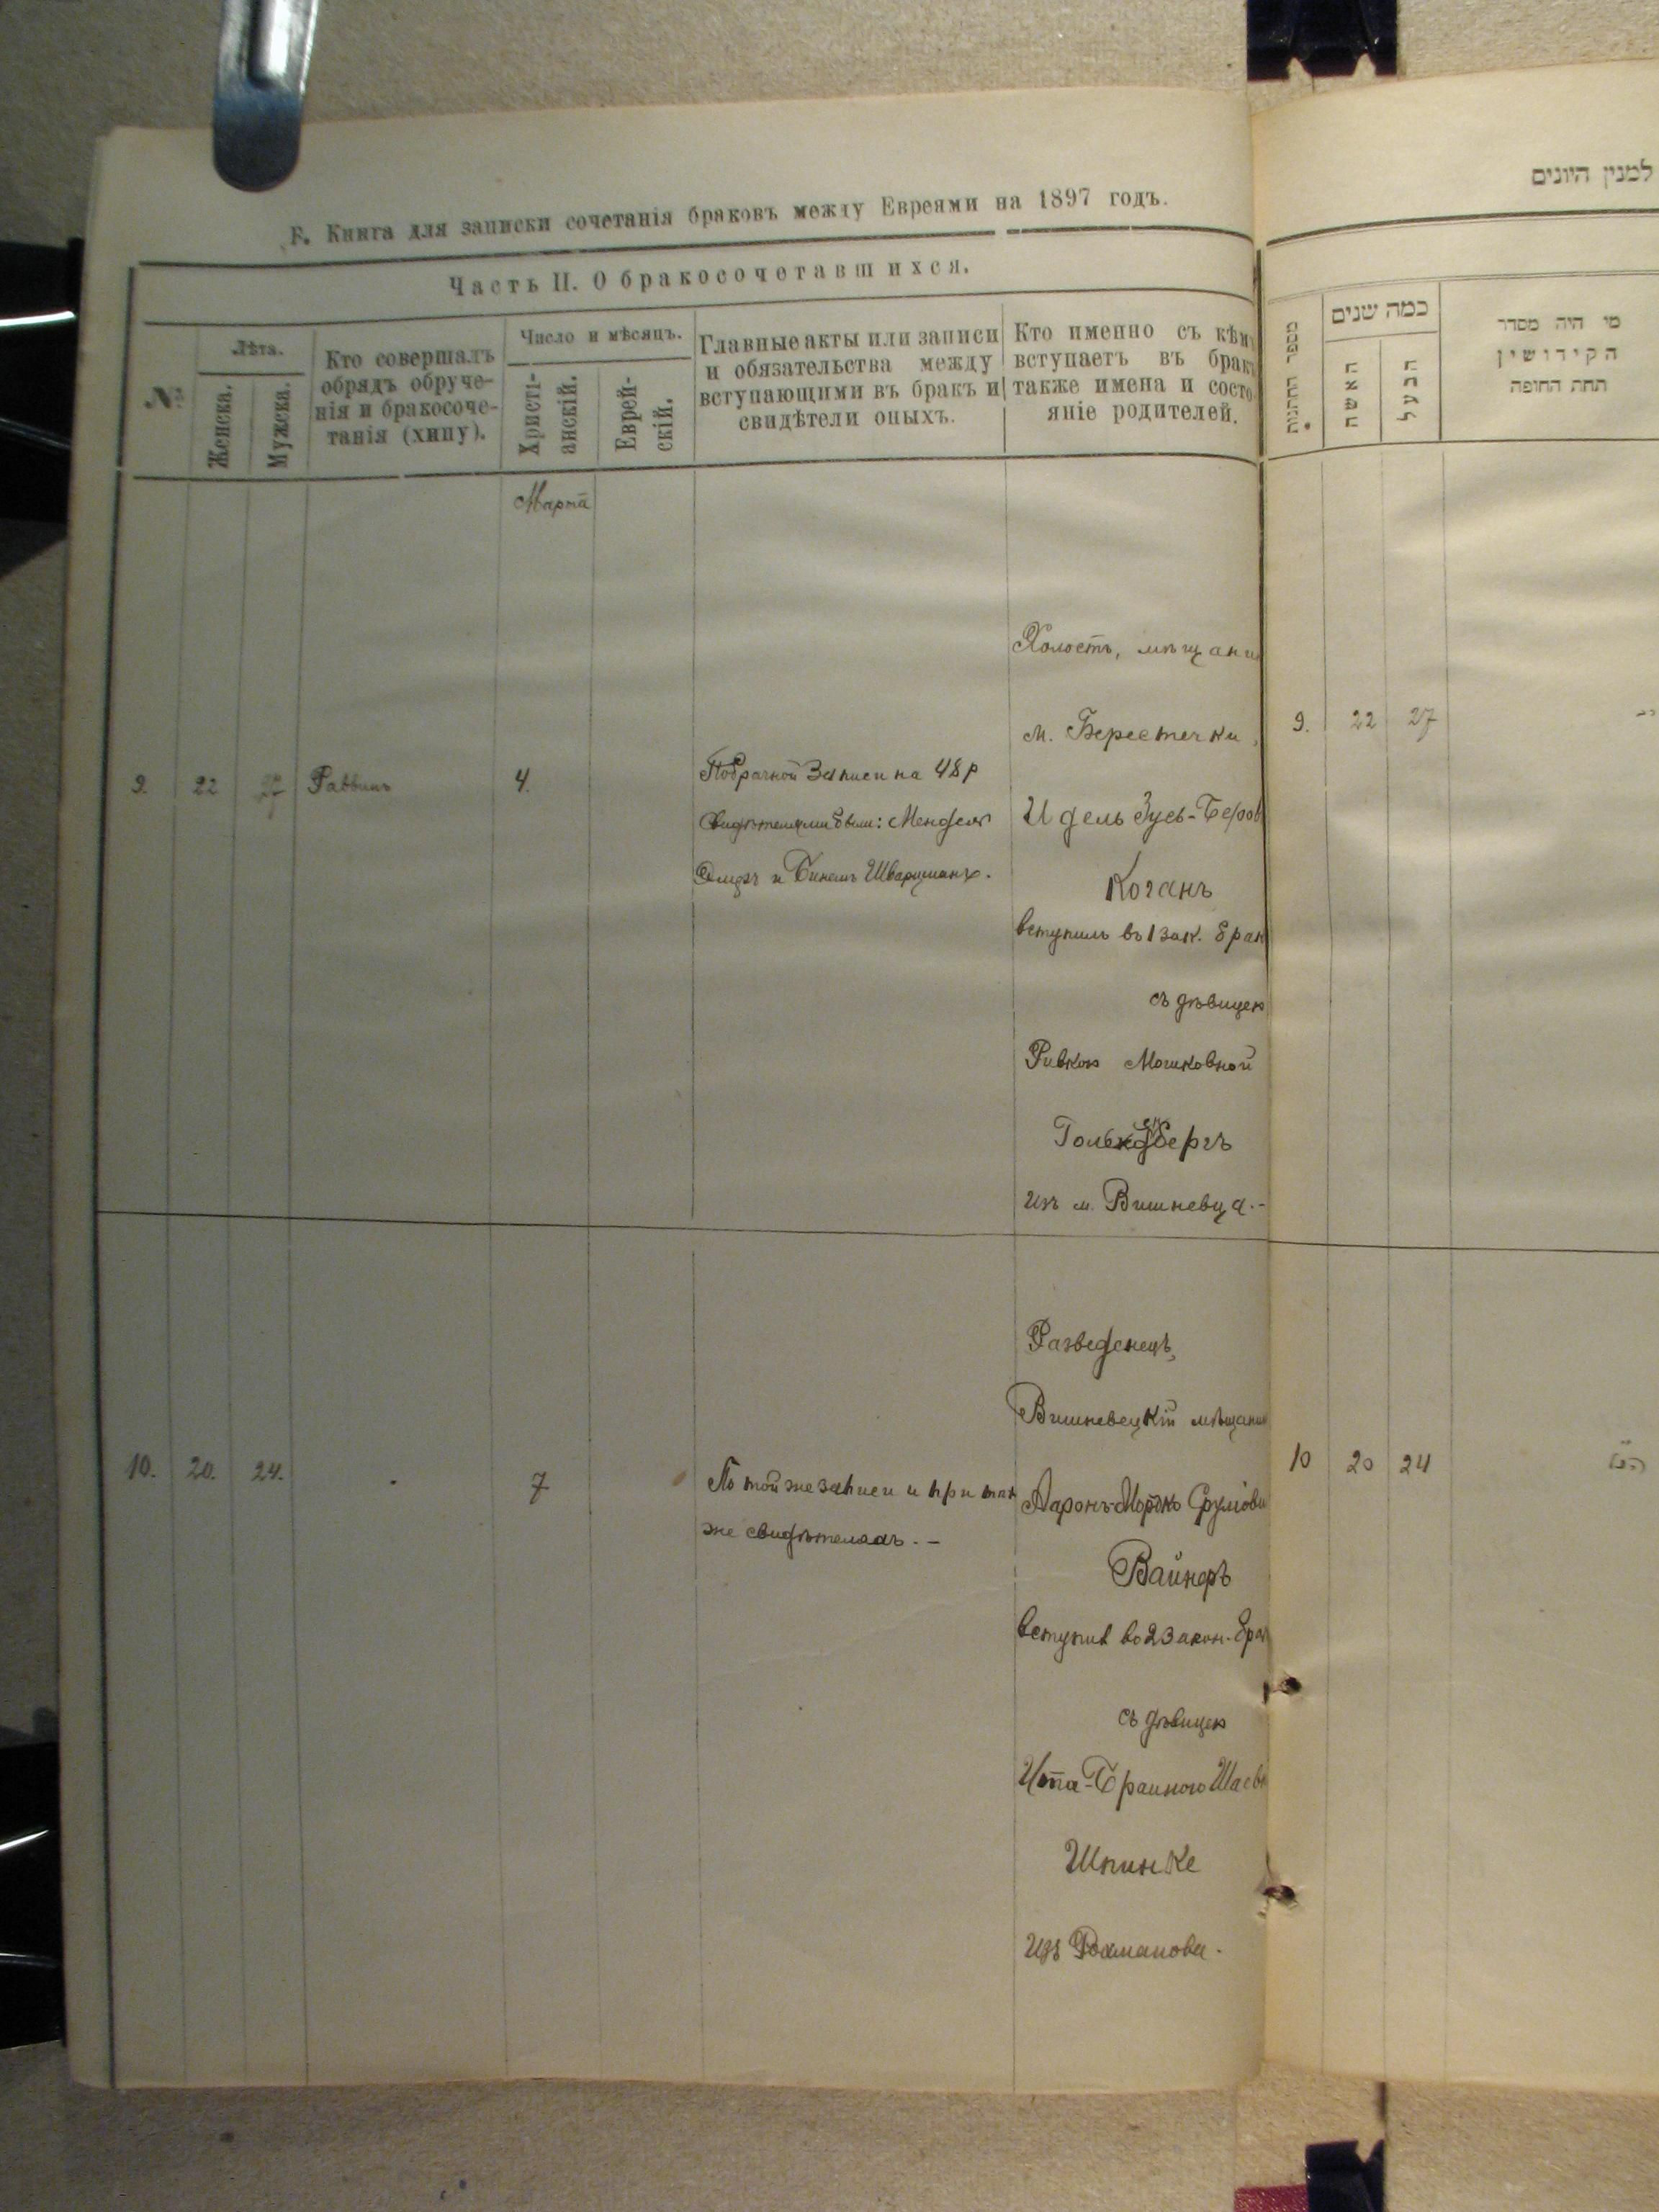 Б. Книга для записки сочетанія браковъ между Евреями на 1897 годъ.
Часть II. О бракосочетавшихся.
№
Лѣта.
Женска.
Мужска.
Кто совершалъ
обрядъ обруче-
нія и бракосоче-
танія (хипу).
Число и мѣсяцъ.
Христі-
анскій.
Еврей-
скій.
Главные акты или записи
и обязательства между
вступающими въ бракъ и
свидѣтели оныхъ.
Кто именно съ кѣмъ
вступаетъ въ бракъ
также имена и состо-
яніе родителей.
Марта
9. 22 27 Раввинъ 4.
По брачной записи на 48 р
Свидѣтелями были: Мендель
и Бинемъ Шварцманъ.
Холостъ, мѣщани
м. Берестечки,
Идель Зусь-Беров
Коганъ
вступилъ въ 1 зак. брак
съ дѣвицею
Ривкою Мошковной
из м. Вишневца.-
10. 20. 24. 7
По той же записи и при тѣх
же свидѣтеляхъ.-
Разведенецъ,
Вишневецкій мѣщанин
Ааронъ-Мордко Срулiови
Вайнеръ
вступил во 2 закон. брак
съ дѣвицею
Шпинке
Изъ Рахманова.
למנין היונים
מספר החתונות
כמה שנים
האשה
הבעל
מי היה מסדר
הקידושין
תחת החופה
9. 22 27
10 20 24